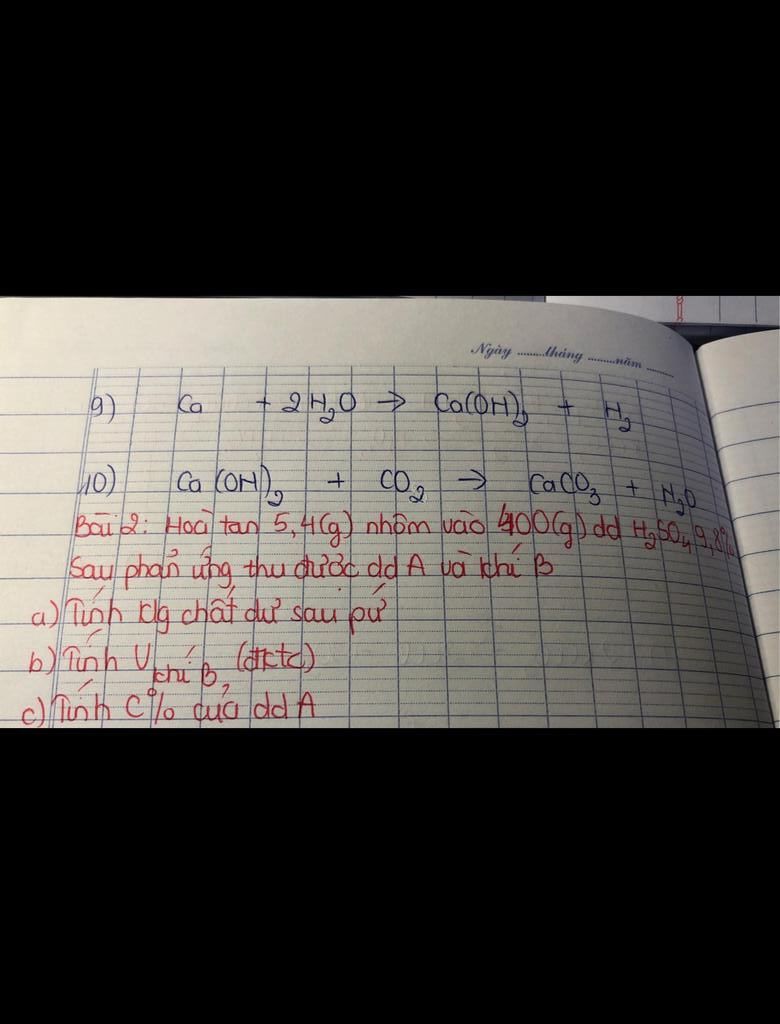 Ngày .........tháng .........năm .........
9) Ca + 2H₂O → Ca(OH)₂ + H₂
10) Ca(OH)₂ + CO₂ → CaCO₃ + H₂O
Bài 2: Hoà tan 5,4(g) nhôm vào 400(g) dd H₂SO₄ 9,8%
Sau phản ứng thu được dd A và khí B
a) Tính klg chất dư sau pứ
b) Tính V khí B (đktc)
c) Tính C% của dd A